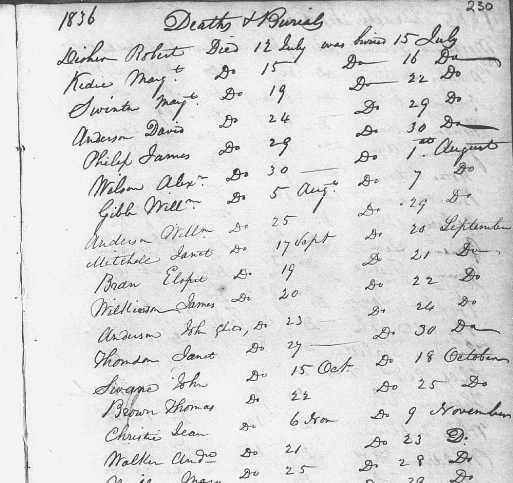 1836 Deaths & Burials 230
Robert Died 12 July was buried 15 July
Kedie Margt. Do 15 Do 16 Do
Swinton Margt. Do 19 Do 22 Do
Anderson David Do 24 Do 29 Do
Philip James Do 29 Do 30 Do
Wilson Alexr. Do 30 Do 1st August
Gibb Willm. Do 5 Augt. Do 7 Do
Anderson Willm Do 25 Do 29 Do
Mitchell Janet Do 17 Sept Do 20 September
Bran Elspet Do 19 Do 21 Do
Wilkinson James Do 20 Do 22 Do
Anderson John Do 23 Do 24 Do
Thomson Janet Do 27 Do 30 Do
John Do 15 Oct. Do 18 October
Brown Thomas Do 22 Do 25 Do
Christie Jean Do 6 Nov Do 9 November
Walker Andw Do 21 Do 23 Do
Do 25 Do 28 Do